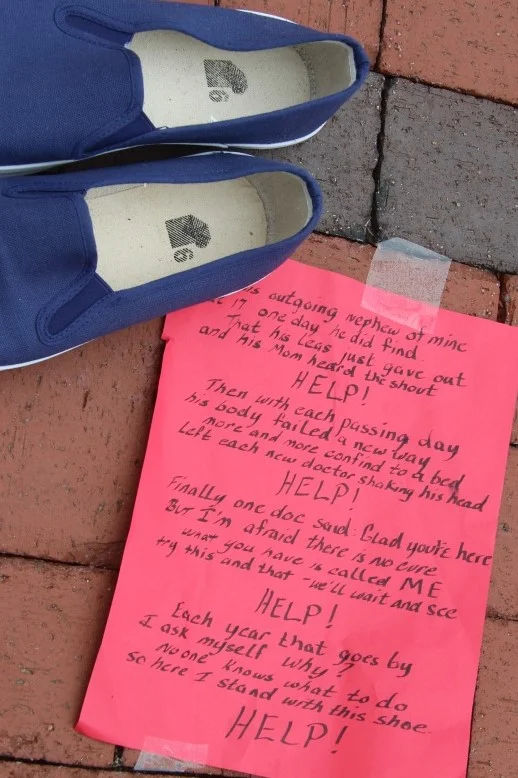 6
6
is outgoing nephew of mine
17 one day he did find
That his legs just gave out
and his Mom heard the shout
HELP!
Then with each passing day
his body failed a new way
more and more confind to a bed
Left each new doctor shaking his head
HELP!
Finally one doc said: Glad you're here
But I'm afraid there is no cure
what you have is called ME
try this and that - we'll wait and see
HELP!
Each year that goes by
I ask myself why?
No one knows what to do
so here I stand with this shoe.
HELP!